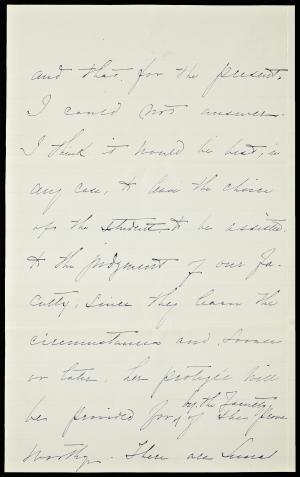 and that, for the present,
I could not answer.
I think it would be best, in
any case, to leave the choice
of the student, to be assisted,
to the judgment of our Fa-
culty, since they learn the
circumstances and, sooner
or later, her protegée will
be provided for, by the Faculty
if she prove
worthy. There are several